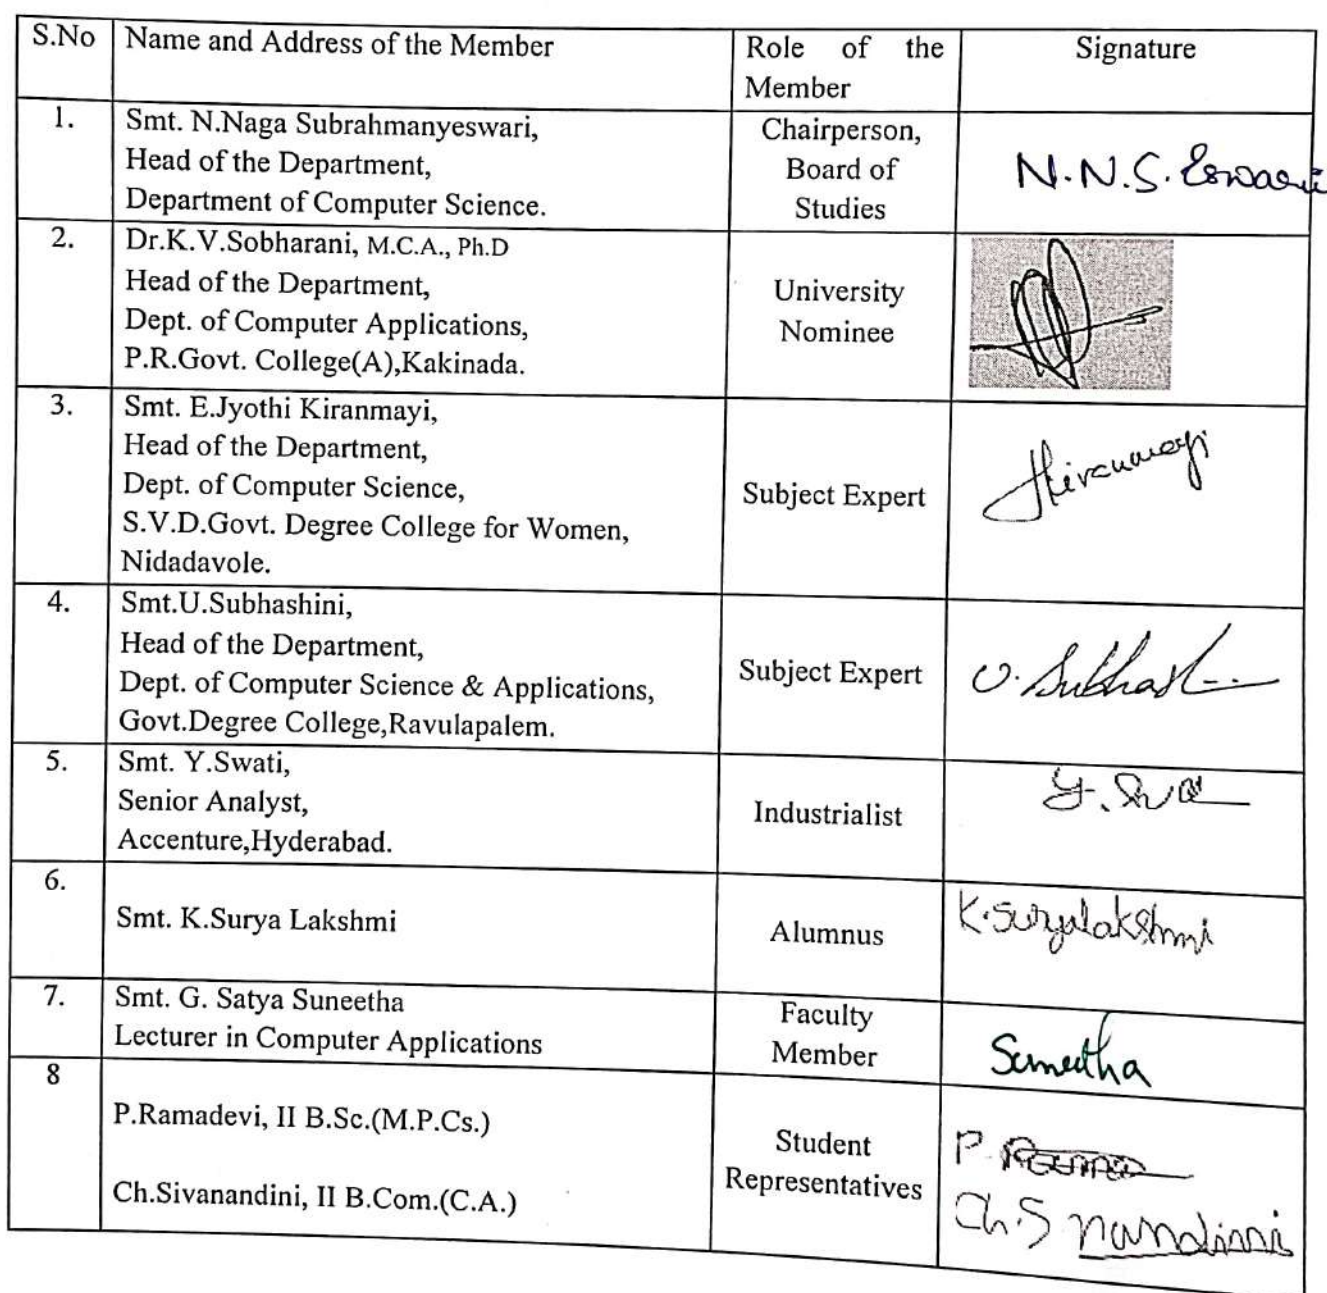 S.No Name and Address of the Member Role of the Signature
Member
1. Smt. N.Naga Subrahmanyeswari,
Head of the Department,
Department of Computer Science.
Chairperson,
Board of
Studies
N.N.S. Eswari
2. Dr.K.V.Sobharani, M.C.A., Ph.D
Head of the Department,
Dept. of Computer Applications,
P.R.Govt. College(A),Kakinada.
University
Nominee
3. Smt. E.Jyothi Kiranmayi,
Head of the Department,
Dept. of Computer Science,
S.V.D.Govt. Degree College for Women,
Nidadavole.
Subject Expert
Kiranmayi
4. Smt.U.Subhashini,
Head of the Department,
Dept. of Computer Science & Applications,
Govt.Degree College,Ravulapalem.
Subject Expert
U. Subhash
5. Smt. Y.Swati,
Senior Analyst,
Accenture,Hyderabad.
Industrialist
Y.
6.
Smt. K.Surya Lakshmi
Alumnus
K.Suryalakshmi
7. Smt. G. Satya Suneetha
Lecturer in Computer Applications
Faculty
Member
Suneetha
8
P.Ramadevi, II B.Sc.(M.P.Cs.)
Ch.Sivanandini, II B.Com.(C.A.)
Student
Representatives
P
Ch.S nandini